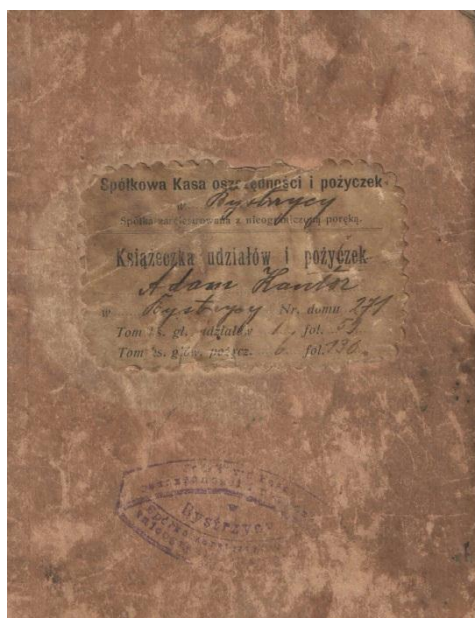 Spółkowa Kasa oszczędności i pożyczek
w Bystrzycy
Spółka zarejestrowana z nieograniczoną poręką.
Książeczka udziałów i pożyczek
Adam Kantór
w Bystrzycy Nr. domu 271
Tom ks. gł. udziałów 1. fol. 51
Tom ks. głów. pożycz. 6. fol. 130.
w
Bystrzycy